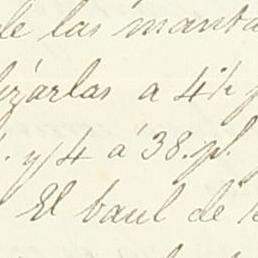 de las manta
izarlas a 4½ p
. y 4 á 38. pl.
El baul de